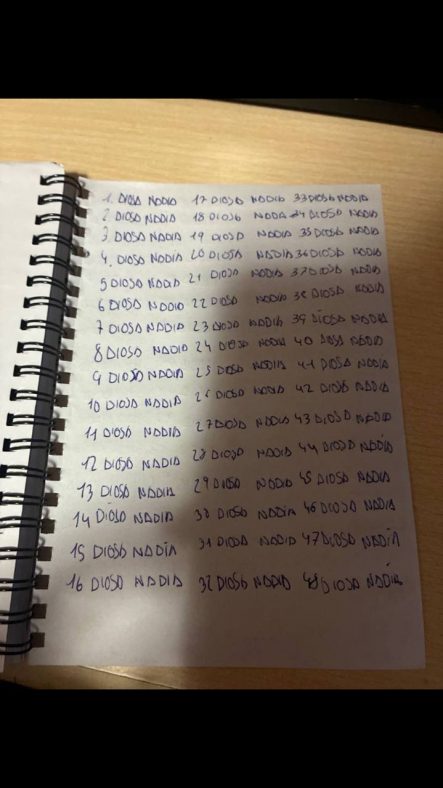 1. DIOSA NADIA 17 DIOSA NADIA 33 DIOSA NADIA
2 DIOSA NADIA 18 DIOSA NADIA 34 DIOSA NADIA
3 DIOSA NADIA 19 DIOSA NADIA 35 DIOSA NADIA
4. DIOSA NADIA 20 DIOSA NADIA 36 DIOSA NADIA
5 DIOSA NADIA 21 DIOSA NADIA 37 DIOSA NADIA
6 DIOSA NADIA 22 DIOSA NADIA 38 DIOSA NADIA
7 DIOSA NADIA 23 DIOSA NADIA 39 DIOSA NADIA
8 DIOSA NADIA 24 DIOSA NADIA 40 DIOSA NADIA
9 DIOSA NADIA 25 DIOSA NADIA 41 DIOSA NADIA
10 DIOSA NADIA 26 DIOSA NADIA 42 DIOSA NADIA
11 DIOSA NADIA 27 DIOSA NADIA 43 DIOSA NADIA
12 DIOSA NADIA 28 DIOSA NADIA 44 DIOSA NADIA
13 DIOSA NADIA 29 DIOSA NADIA 45 DIOSA NADIA
14 DIOSA NADIA 30 DIOSA NADIA 46 DIOSA NADIA
15 DIOSA NADIA 31 DIOSA NADIA 47 DIOSA NADIA
16 DIOSA NADIA 32 DIOSA NADIA 48 DIOSA NADIA